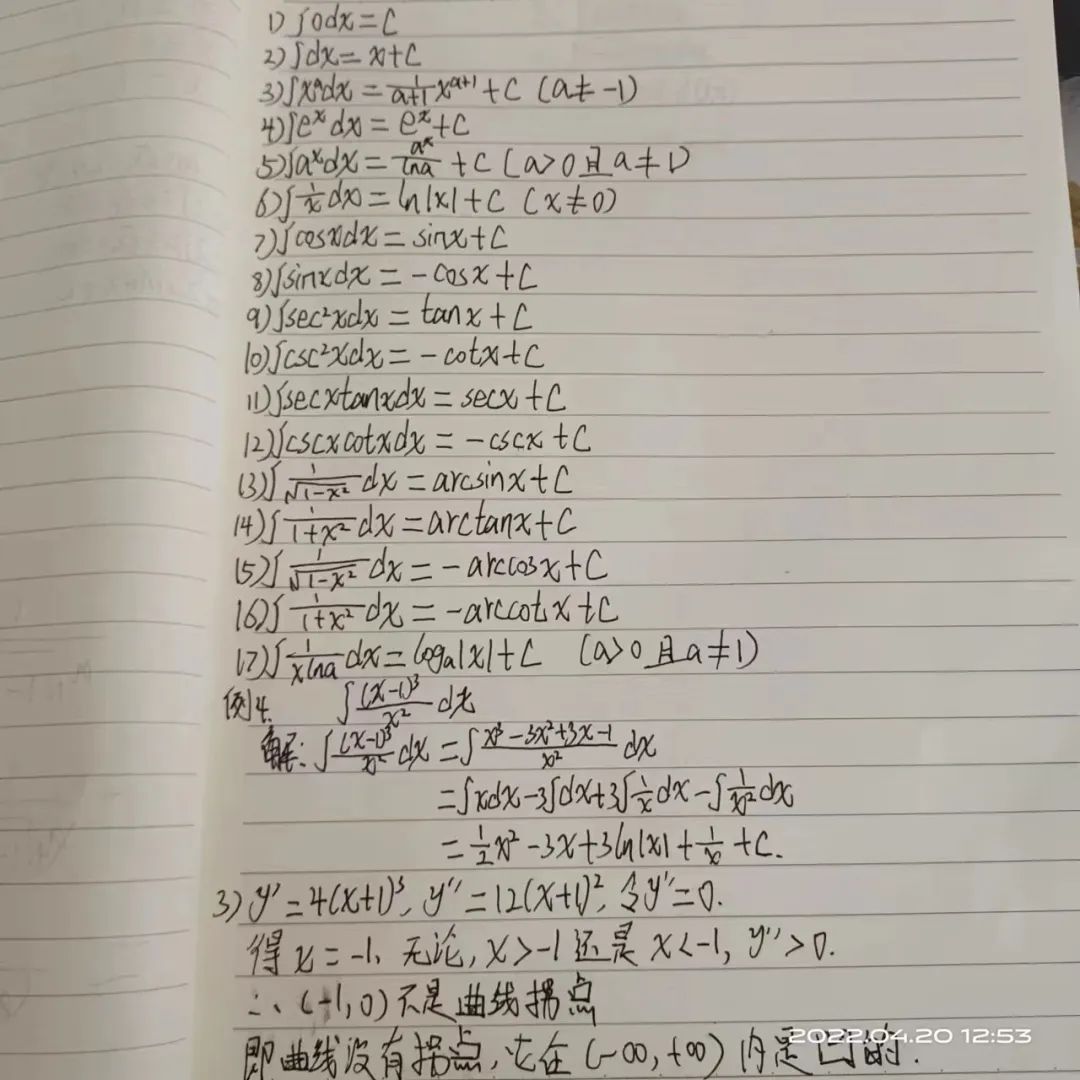 1) ∫0dx = C
2) ∫dx = x+C
3) ∫xᵃdx = 1/(a+1) xᵃ⁺¹ + C (a ≠ -1)
4) ∫eˣdx = eˣ+C
5) ∫aˣdx = aˣ/lna + C (a>0且a≠1)
6) ∫1/x dx = ln|x| + C (x≠0)
7) ∫cosxdx = sinx+C
8) ∫sinxdx = -cosx+C
9) ∫sec²xdx = tanx+C
10) ∫csc²xdx = -cotx+C
11) ∫secxtanxdx = secx+C
12) ∫cscxcotxdx = -cscx+C
13) ∫1/√(1-x²) dx = arcsinx+C
14) ∫1/(1+x²) dx = arctanx+C
15) ∫1/√(1-x²) dx = -arccosx+C
16) ∫1/(1+x²) dx = -arccotx+C
17) ∫1/(xlna) dx = logₐ|x|+C (a>0且a≠1)
例4. ∫(x-1)³/x² dx
解: ∫(x-1)³/x² dx = ∫(x³-3x²+3x-1)/x² dx
=∫xdx-3∫dx+3∫1/x dx-∫1/x² dx
=1/2x²-3x+3ln|x|+1/x+C.
3) y'=4(x+1)³, y''=12(x+1)², 令y''=0.
得x=-1, 无论, x>-1还是x<-1, y''>0.
∴(-1,0)不是曲线拐点
即曲线没有拐点, 它在(-∞,+∞)内是凹的.
2022.04.20 12:53